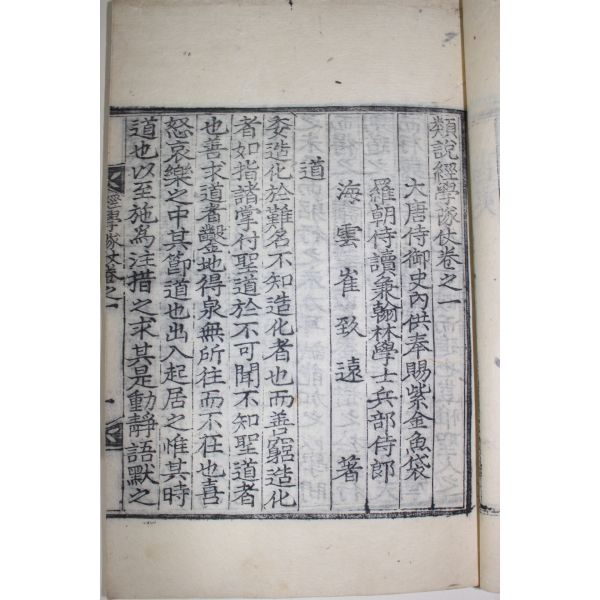 類說經學隊仗卷之一
大唐侍御史內供奉賜紫金魚袋
羅朝侍讀兼翰林學士兵部侍郎
海雲崔致遠 著
道
委造化於難名不知造化者也而善窮造化
者如指諸掌付聖道於不可聞不知聖道者
也善求道者鑿地得泉無所往而不在也喜
怒哀樂之中其節道也出入起居之惟其時
道也以至施為注措之求其是動靜語默之
經學隊仗卷之一
一